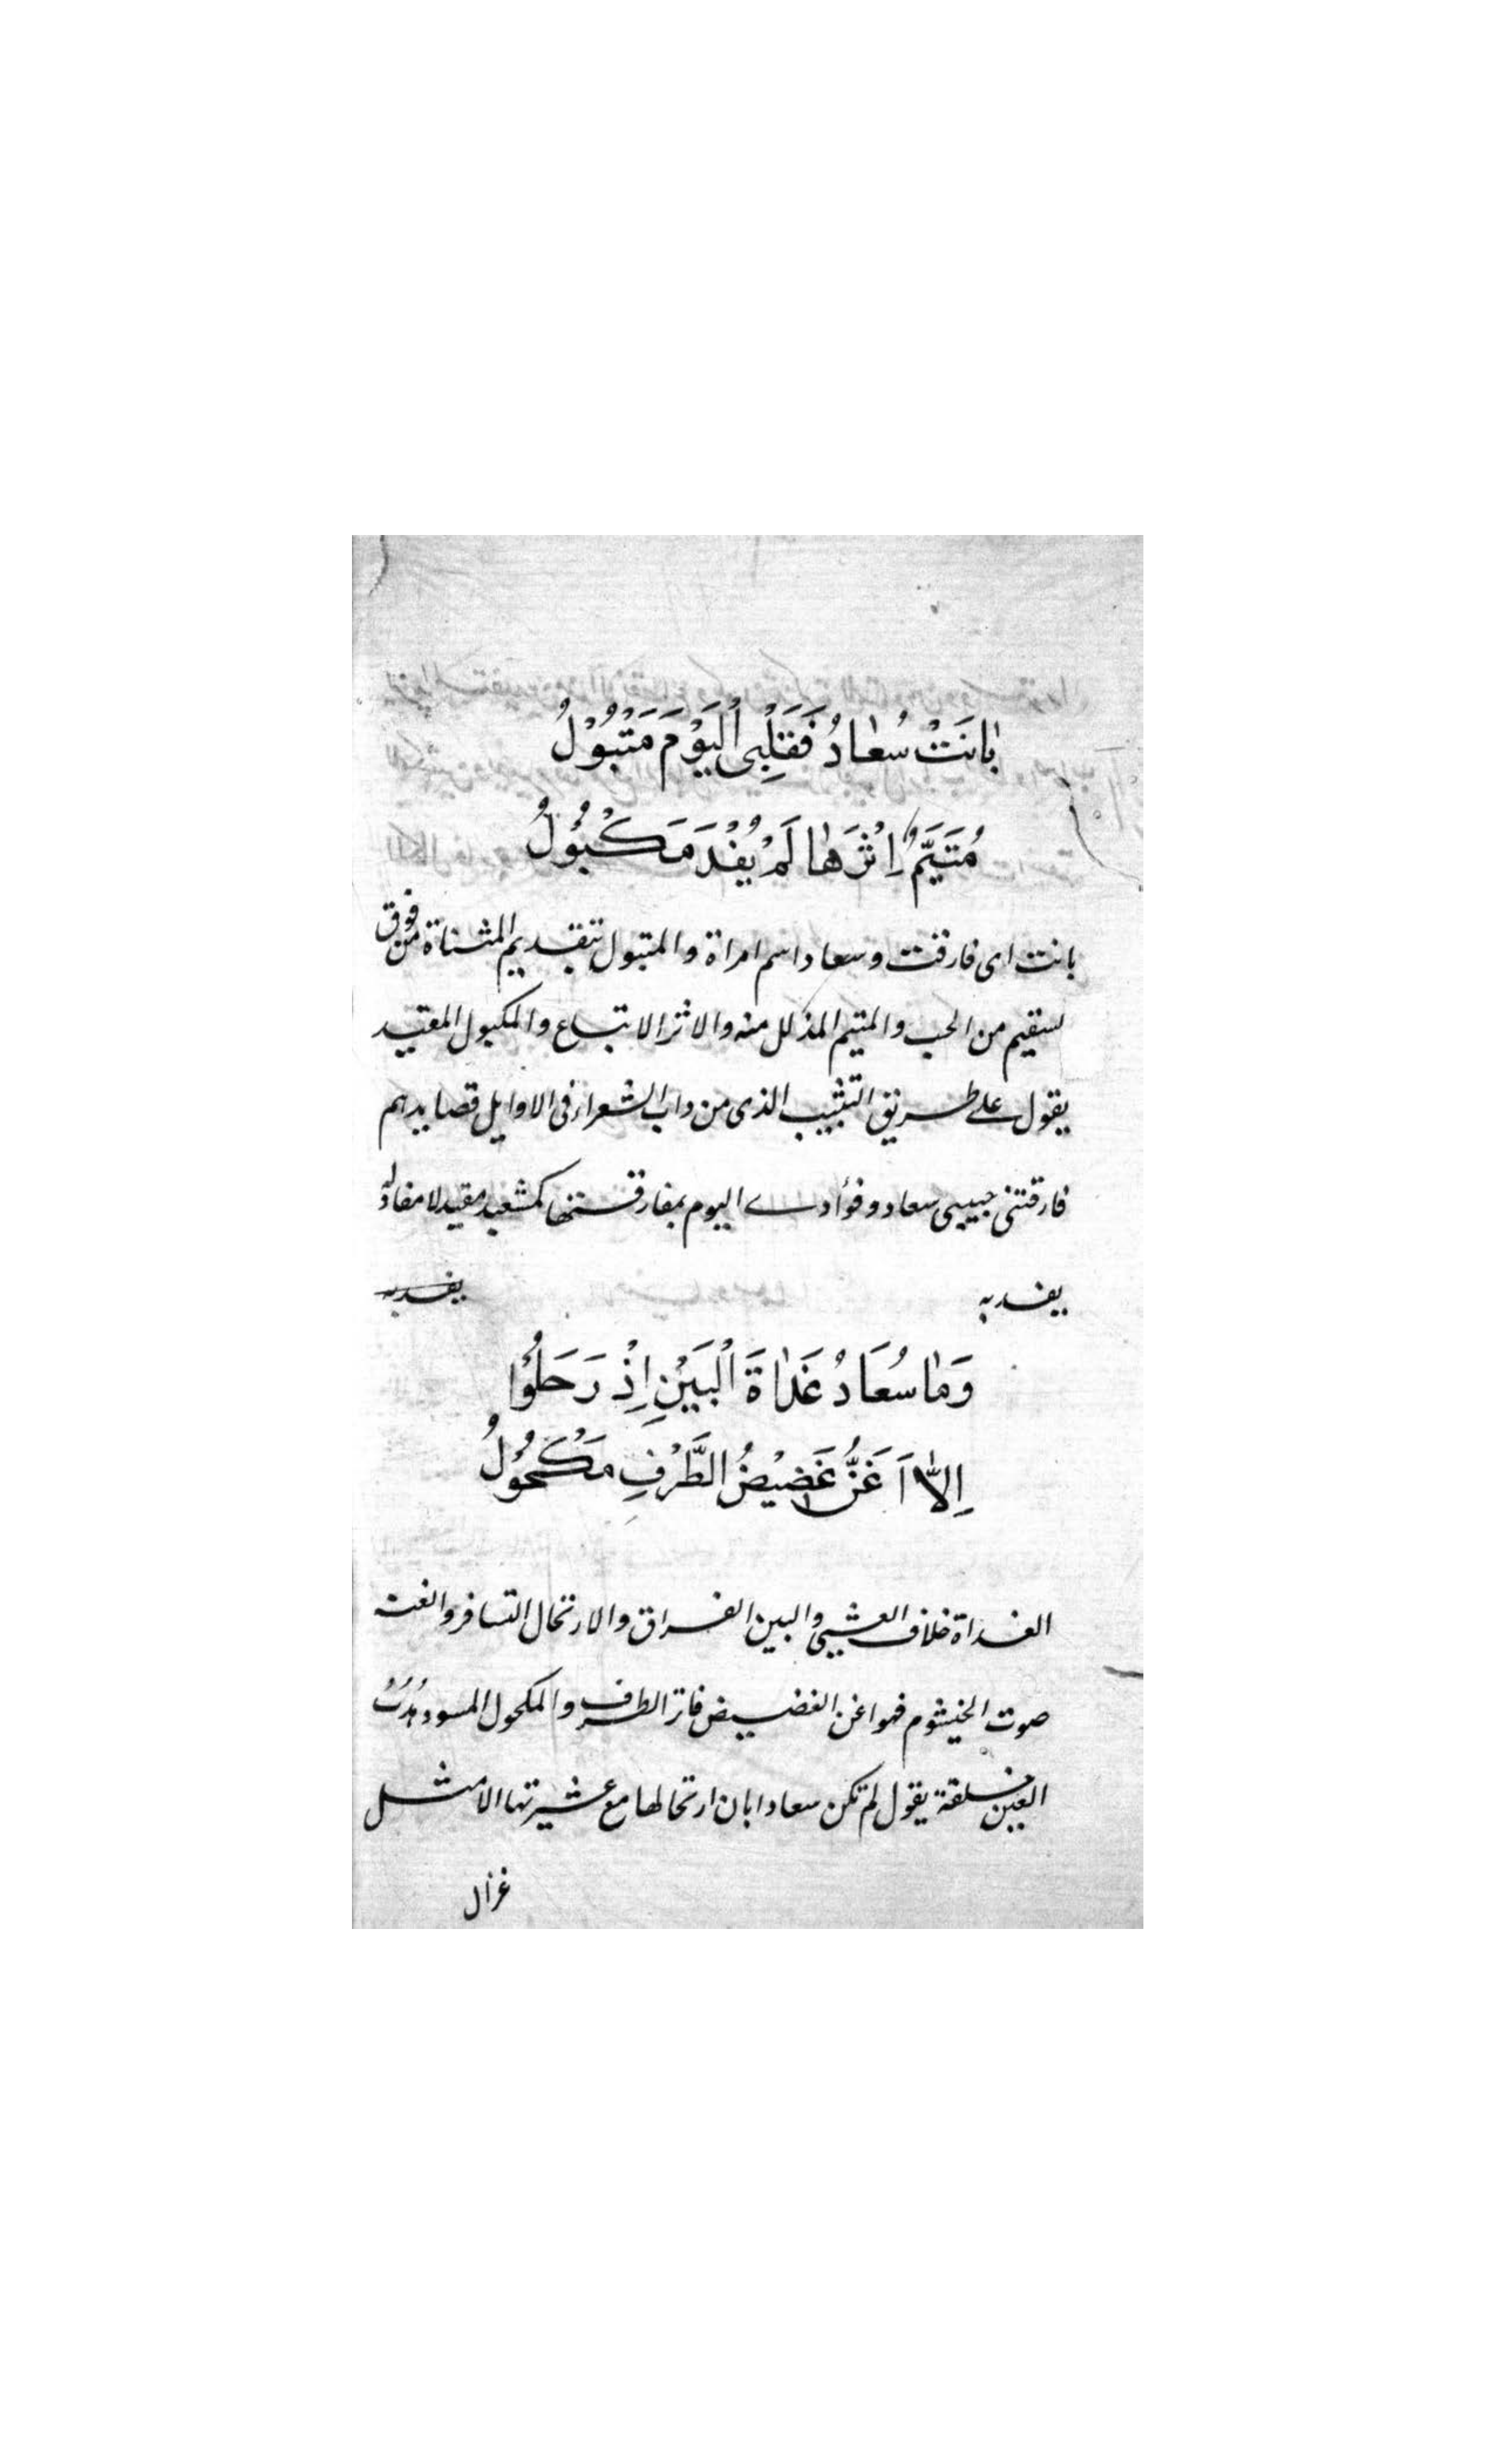 بٰانَتْ سُعٰادُ فَقَلْبِى اَلْيَوْمَ مَتْبُوْلُ
مُتَيَّمٌ اِثْرَهٰا لَمْ يُفْدَ مَكْبُوْلُ
بانت اى فارقت وسعاد اسم امراة والمتبول بتقديم المثناة من فوق
لسقيم من الحب والمتيم المذلل منه والاثر الاتباع والمكبول المقيد
يقول على طريق التشبيب الذى من داب الشعراء فى الاوايل قصايدهم
فارقتنى حبيبى سعاد وفؤادے اليوم بمفارقتها مقيد لا مفاد له
يفديه يفديه
وَمٰا سُعَادُ غَدٰاةَ الْبَيْنِ اِذْ رَحَلُوْا
اِلاّٰ اَغَنُّ غَضِيْضُ الطَّرْفِ مَكْحُوْلُ
الغداة خلاف العشى والبين الفراق والارتحال التسافر والغنة
صوت الخيشوم فهو اغن الغضيض فاتر الطرف والمكحول المسود
العين خلقة يقول لم تكن سعاد ابان ارتحالها مع عشيرتها الا مثل
غزال